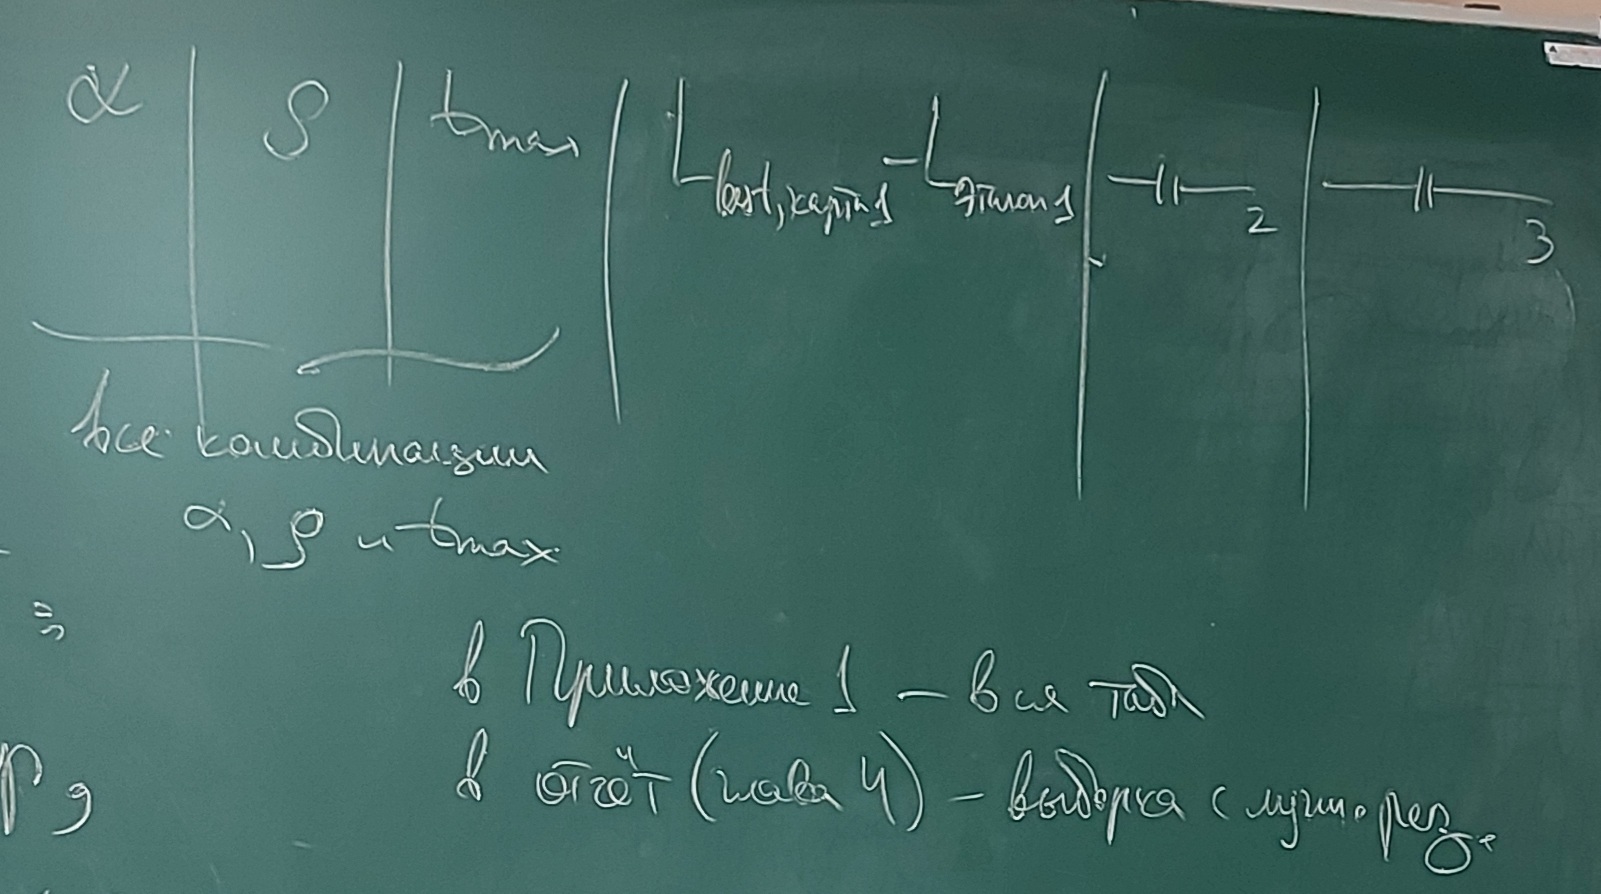 α | ρ | tmax | Lbest,карта1 - Lэталон1 | —||— 2 | —||— 3
все комбинации
α, ρ и tmax
в Приложение 1 – вся табл
в отчёт (глава 4) – выборка с лучш. рез.